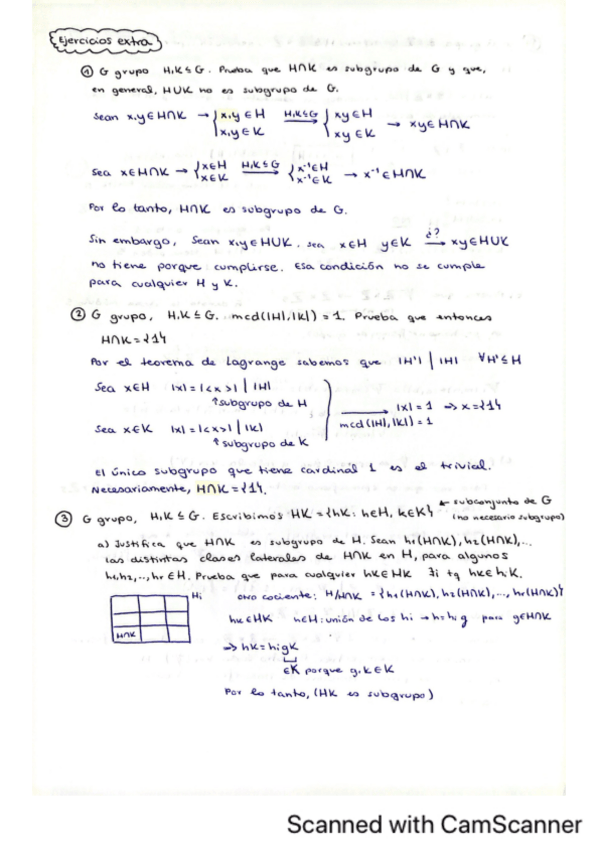 Ejercicios extra
① G grupo H,K ≤ G. Prueba que H∩K es subgrupo de G y que,
en general, HUK no es subgrupo de G.
Sean x,y ∈ H∩K → { x,y ∈ H x,y ∈ K H,K≤G → { xy ∈ H xy ∈ K → xy ∈ H∩K
Sea x ∈ H∩K → { x∈H x∈K H,K≤G → { x⁻¹∈H x⁻¹∈K → x⁻¹ ∈ H∩K
Por lo tanto, H∩K es subgrupo de G.
Sin embargo, sean x,y ∈ HUK. sea x∈H y∈K ¿? → xy ∈ HUK
no tiene porque cumplirse. Esa condición no se cumple
para cualquier H y K.
② G grupo, H,K ≤ G. mcd(|H|,|K|) = 1. Prueba que entonces
H∩K = {1}
Por el teorema de Lagrange sabemos que |H'| | |H| ∀H' ≤ H
Sea x∈H |x| = |<x>| | |H|
↑subgrupo de H
Sea x∈K |x| = |<x>| | |K|
↑subgrupo de K
→ |x| = 1 → x = {1}
mcd(|H|,|K|) = 1
El único subgrupo que tiene cardinal 1 es el trivial.
Necesariamente, H∩K = {1}.
③ G grupo, H,K ≤ G. Escribimos HK = {hK: h∈H, k∈K} ← subconjunto de G
(no necesario subgrupo)
a) Justifica que H∩K es subgrupo de H. Sean h₁(H∩K), h₂(H∩K),...
las distintas clases laterales de H∩K en H, para algunos
h₁,h₂,..,hr ∈ H. Prueba que para cualquier hk∈HK ∃i tq hk∈hᵢK.
Hi
H∩K
otro cociente: H/H∩K = {h₁(H∩K), h₂(H∩K),..., hr(H∩K)}
hk∈HK h∈H: unión de los hi → h=hᵢg para g∈H∩K
→ hk = hᵢgk
∈K porque g,k∈K
Por lo tanto, (HK es subgrupo)
Scanned with CamScanner